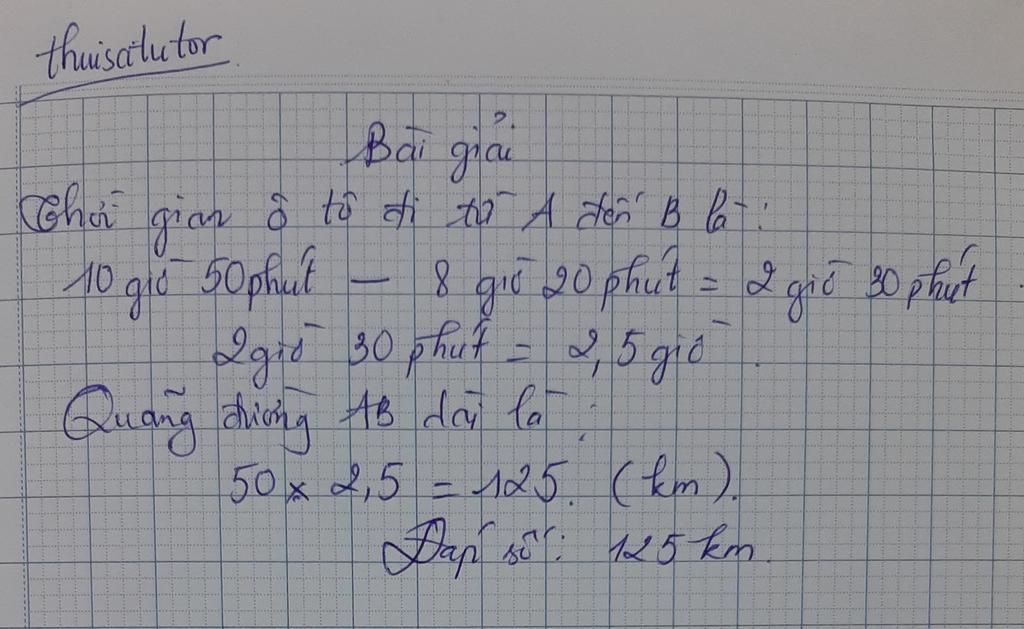 thuisatutor
Bài giải
Thời gian ô tô đi từ A đến B là:
10 giờ 50 phút - 8 giờ 20 phút = 2 giờ 30 phút.
2 giờ 30 phút = 2,5 giờ.
Quãng đường AB dài là:
50 x 2,5 = 125. (km).
Đáp số: 125 km.